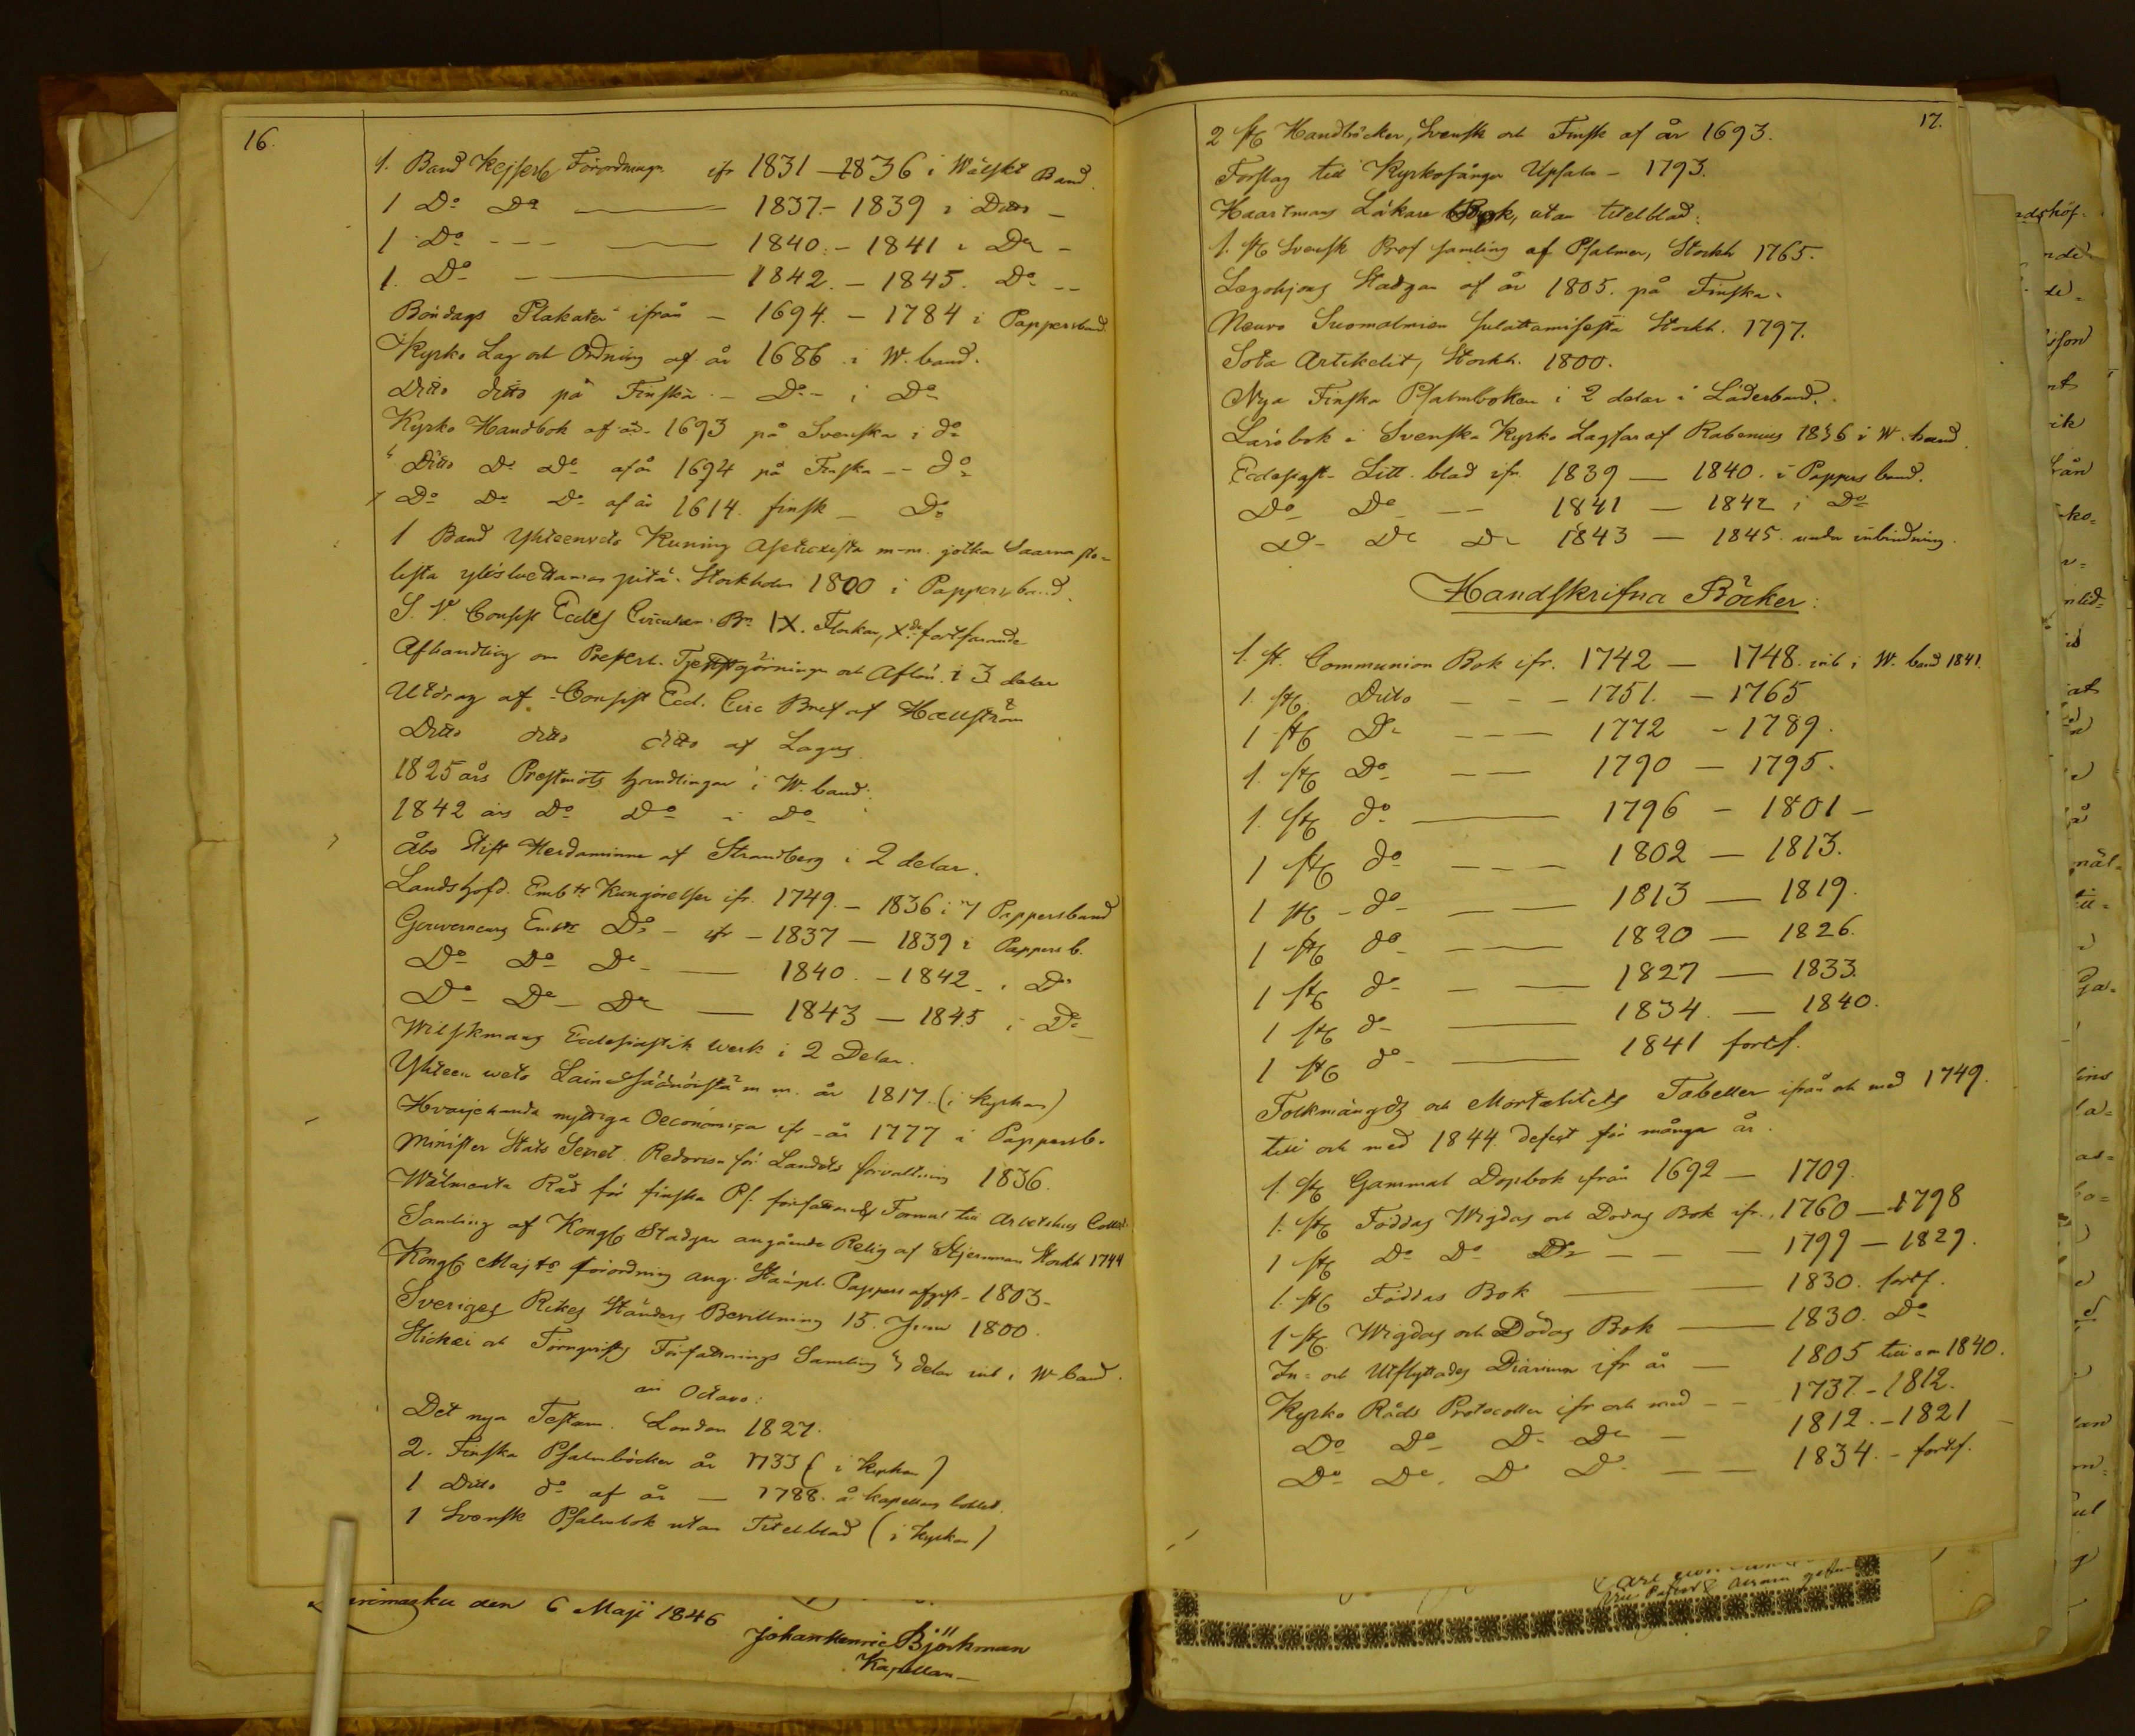 16.
1. Band Kejserl Förordningr ifr 1831 — 1836 i Wälskt Band.
1 Do Do — 1837. — 1839 i Ditto —
1 Do — 1840. — 1841 i Do —
1. Do — 1842. — 1845. Do —
Böndags Plakater ifrån — 1694. — 1784 i Pappersband
Kyrko Lag och Ordning af år 1686 i W. band.
Ditto ditto på Finska — Do — i Do
Kyrko Handbok af år 1693 på Svenska i do
Ditto Do Do af år 1694 på Finska — do
1 Do Do Do af år 1614. finsk — Do
1 Band Yhteenveto Kuning Asetuxista m.m. jotka Saarnasto=
lista ylösluettaman pitä. Stockholm 1800 i Pappersband.
S. V. Consist Eccles Circulär Br. IX. Flockar, X de fortfarande
Afhandling om Prester. Tjenstgörningr och Aflön. i 3 delar
Utdrag af Consist Eccl. Circ Bref af Hællström
Ditto ditto ditto af Lagus.
1825 års Prestmöts handlingar i W. band.
1842 års Do Do i Do
Åbo Stift Herdaminne af Strandberg i 2 delar.
Landshöfd. Embts Kungörelser ifr. 1749. — 1836 i 7 Pappersband
Gouverneurs Embts Do — ifr — 1837 — 1839 i Pappers b.
Do Do Do — 1840. — 1842 — i Do
Do Do Do — 1843 — 1845 i Do
Wilskmans Ecclesiastik Werk i 2 Delar.
Yhteen weto Lain Säänöistä m m. år 1817. (i Kyrkan)
Hvarjehanda nyttiga Oeconomica ifr år 1777 i Pappersb.
Minister Stats Secret. Redovisn för Landets förvaltning 1836.
Wälmenta Råd för finska Ps. författande Format till Arbetshus
Samling af Kongl Stadgar angående Relig af Stjernman Stockh 1744
Kongl Majts förordning ang. Stämpl. Pappers afgift — 1803 —
Sveriges Rikes Ständers Bevillning 15. Juni 1800.
Stickæi och Törnqvists Författnings Samling 4 delar inb i W band.
in Octavo:
Det nya Testam. London 1827.
2. Finska Psalmböcker år 1733 (i Kyrkan)
1 Ditto do af år — 1788. å Kapellans bohlet.
1 Svensk Psalmbok utan Titelblad (i Kyrkan)
den 6 Maji 1846
Johan Henric Björkman
Kapellan
17.
2 st Handböcker, Svensk och Finsk af år 1693.
Förslag till Kyrkosånger Upsala — 1793.
Haartmans Läkare Bok, utan titelblad.
1. st Svensk Prof samling af Psalmer, Stockh 1765.
Legohjons Stadgan af år 1805. på Finska.
Neuvo Suomalaisen Stockh. 1797.
Sota Artikelit, Stockh. 1800.
Nya Finska Psalmboken i 2 delar i Läderband.
Lärobok i Svenska Kyrko Lagfar af Rabenius 1836 i W. band.
Ecclesiast. Litt. blad ifr. 1839 — 1840. i Pappers band.
Do Do — 1841 — 1842 i Do
Do Do Do 1843 — 1845. under inbindning.
Handskrifna Böcker:
1. st. Communion Bok ifr. 1742 — 1748. inb i W. band 1841.
1. st. Ditto — 1751. — 1765
1 st Do — 1772 — 1789.
1. st Do — 1790 — 1795.
1. st do — 1796 — 1801 —
1 st do — 1802 — 1813.
1 st do — 1813 — 1819.
1 st do — 1820 — 1826.
1 st do — 1827 — 1833.
1 st do — 1834. — 1840.
1 st do — 1841 fortf.
Folkmängds och Mortalitets Tabeller ifrån och med 1749.
till och med 1844. defect för många år.
1. st Gammal Dopbok ifrån 1692 — 1709.
1. st Föddas Wigdas och Dödas Bok ifr. 1760 — 1798
1 st Do Do Do — 1799 — 1829.
1. st Föddas Bok — 1830. fortf.
1 st Wigdas och Dödas Bok — 1830. Do
In- och Utflyttades Diarium ifr år — 1805 till o m 1840.
Kyrko Råds Protocoller ifr och med — 1737. — 1812.
Do Do Do Do — 1812. — 1821
Do Do Do Do — 1834. — fortf.